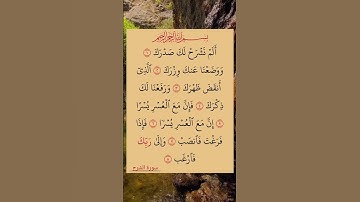 بسم الله الرحمن الرحيم
أَلَمْ نَشْرَحْ لَكَ صَدْرَكَ ١
وَوَضَعْنَا عَنكَ وِزْرَكَ ٢ ٱلَّذِىٓ
أَنقَضَ ظَهْرَكَ ٣ وَرَفَعْنَا لَكَ
ذِكْرَكَ ٤ فَإِنَّ مَعَ ٱلْعُسْرِ يُسْرًا
٥ إِنَّ مَعَ ٱلْعُسْرِ يُسْرًا ٦ فَإِذَا
فَرَغْتَ فَٱنصَبْ ٧ وَإِلَىٰ رَبِّكَ
فَٱرْغَب ٨
سورة الشرح